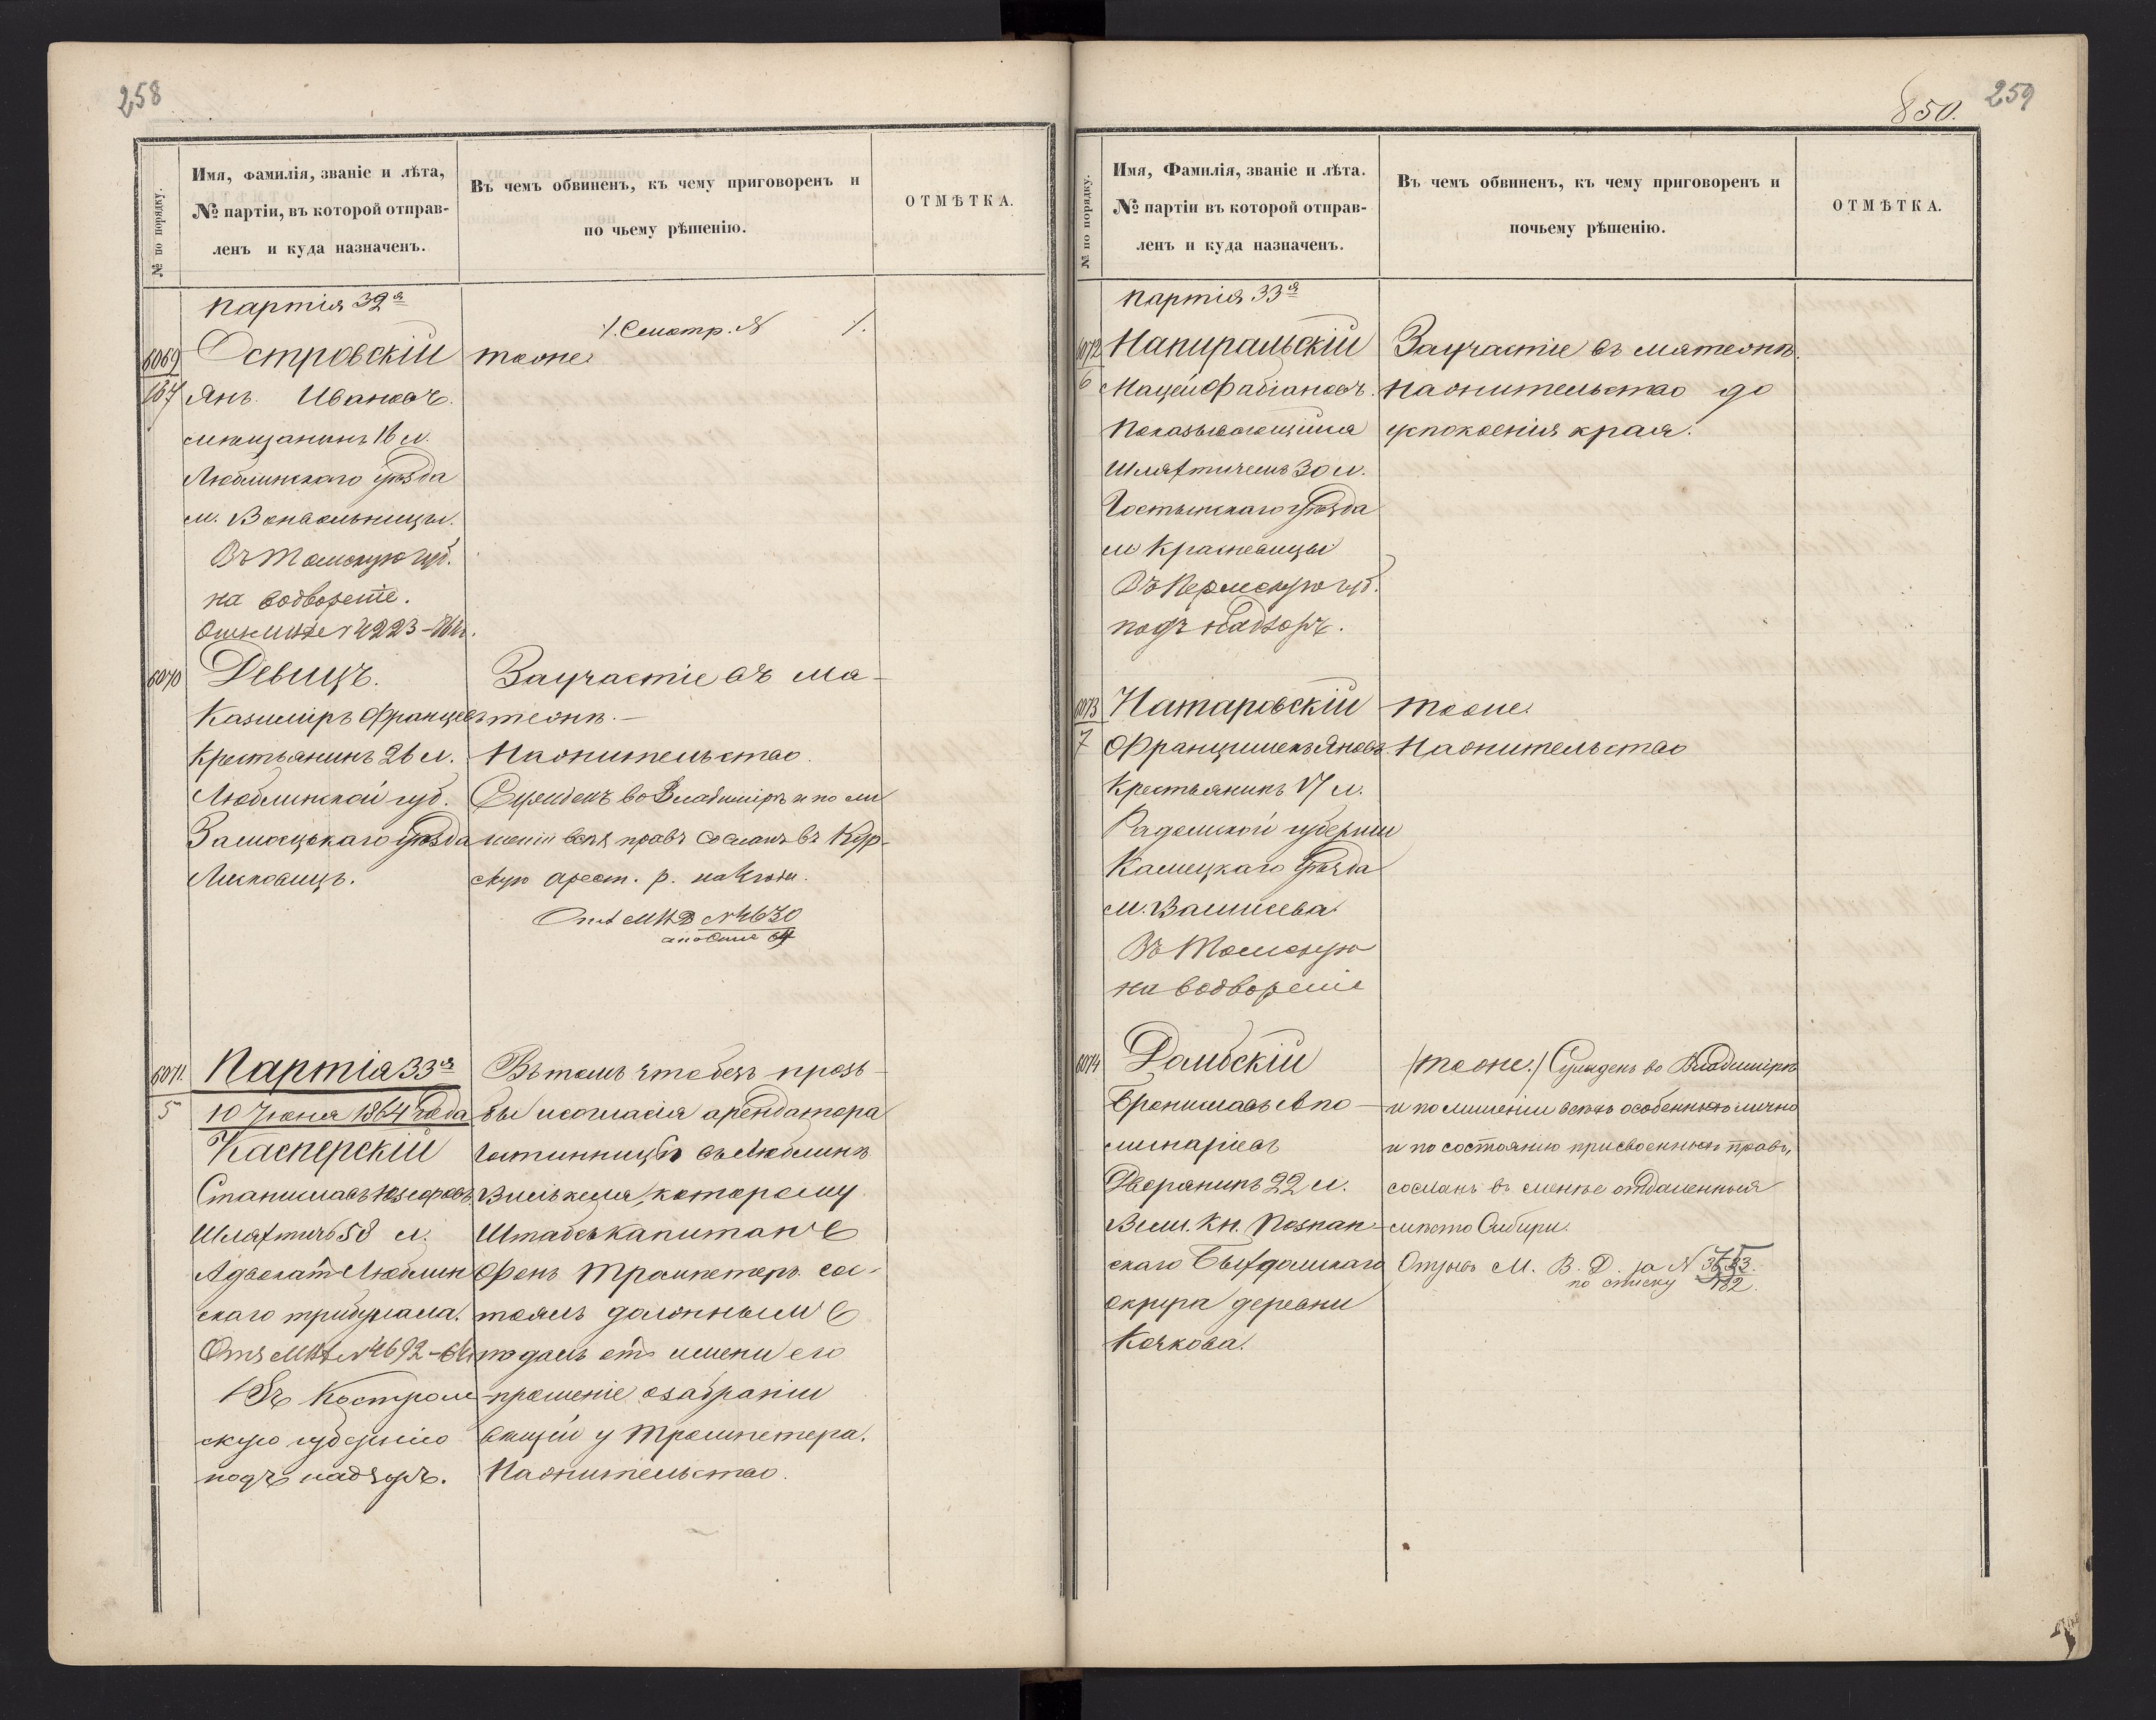 258
№ по порядку.
Имя, фамилія, званіе и лѣта,
№ партіи, въ которой отправ-
ленъ и куда назначенъ.
Въ чемъ обвиненъ, къ чему приговоренъ и
по чьему рѣшенію.
ОТМѢТКА.
партія 32я
/. Смотр. № /.
6069
167
Островскій
тоже
Янъ Ивановъ.
мѣщанинъ 16 л.
Люблинскаго уѣзда
м. Вонвольницы.
Въ Томскую губ.
на водвореніе.
6070
Девицъ.
Казиміръ Францевъ
Крестьянинъ 26 л.
Люблинской губ.
Замосцскаго уѣзда
Лисковицъ.
За участіе въ мя-
тежѣ. —
На жительство.
Сужденъ во Владимірѣ и по ли
шеніи всѣхъ правъ сосланъ въ Кур-
скую арест. р. на 4 года.
Отв МВД № 4630
6071.
5
Партія 33я
10 Іюня 1864 года
Касперскій
Станиславъ Юзефовъ.
Шляхтичъ 58 л.
Адвокатъ Люблин
скаго трибунала.
Въ Костром
скую губернію
подъ надзоръ.
Въ томъ что безъ прозь-
бы и согласія арендатора
гостинницы въ Люблинѣ
Вилькеля, которому
Штабсъ капитанъ
Фонъ Тромпетеръ сос-
тоялъ должнымъ
подалъ отъ имени его
прошеніе о забраніи
вещей у Тромпетера.
На жительство.
259
850.
№ по порядку.
Имя, Фамилія, званіе и лѣта.
№ партіи въ которой отправ-
ленъ и куда назначенъ.
Въ чемъ обвиненъ, къ чему приговоренъ и
почьему рѣшенію.
ОТМѢТКА.
партія 33я
6072
6
Напиральскій
Мацей Фабіановъ.
Показывающійся
Шляхтичемъ 30 л.
Гостынскаго уѣзда
м Красневицы
Въ Пермскую губ.
подъ надзоръ.
За участіе въ мятежѣ.
На жительство до
успокоенія края.
6073
7
Натаровскій
Францишекъ Яновъ.
Крестьянинъ 17 л.
Радомской губерніи
Камецкаго уѣзда
Въ Томскую
на водвореніе
тоже.
На жительство
6074
Домбскій
Брониславъ Апо-
линаріевъ
Дворянинъ 22 л.
Вели. Кн. Познан-
скаго Быдгомскаго
округа деревни
Кочкова.
/тоже./ Сужденъ во Владимірѣ
и по лишеніи всѣхъ особенныхъ лично
и по состоянію присвоенныхъ правъ,
сосланъ въ менѣе отдаленныя
мѣста Сибири.
Отзывъ М. В. Д. за №
по списку 182.